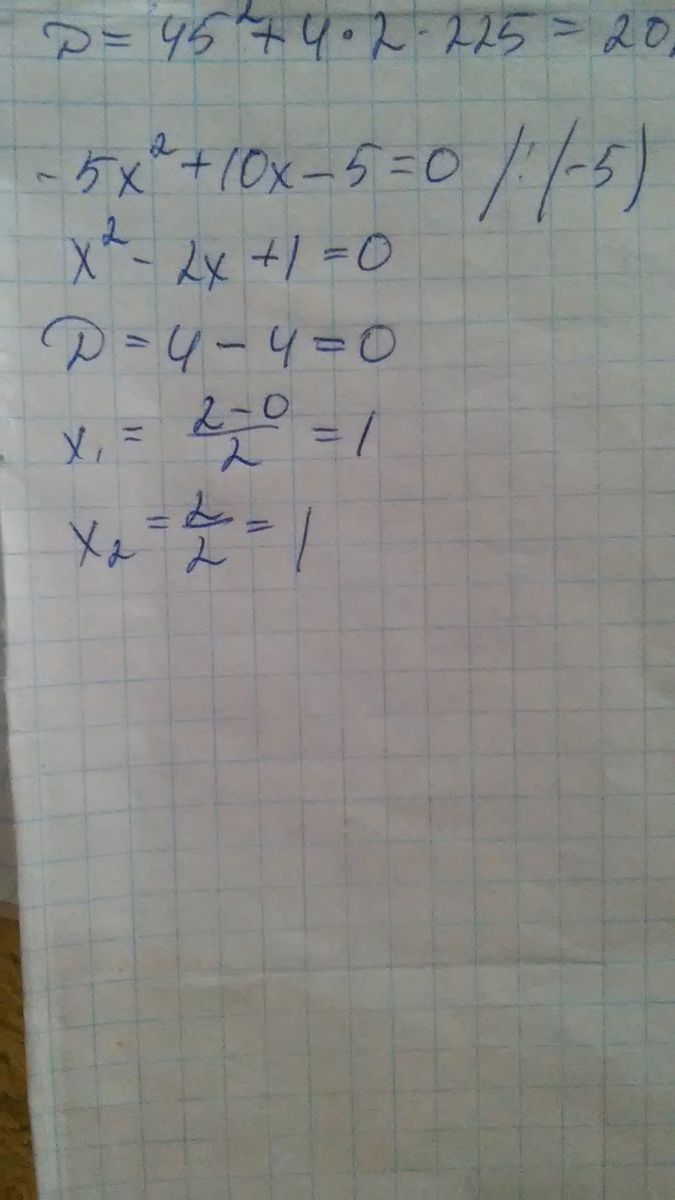 D = 45² + 4 · 2 · 225 = 20
-5x² + 10x - 5 = 0 /:(-5)
x² - 2x + 1 = 0
D = 4 - 4 = 0
x₁ = (2-0)/2 = 1
x₂ = 2/2 = 1